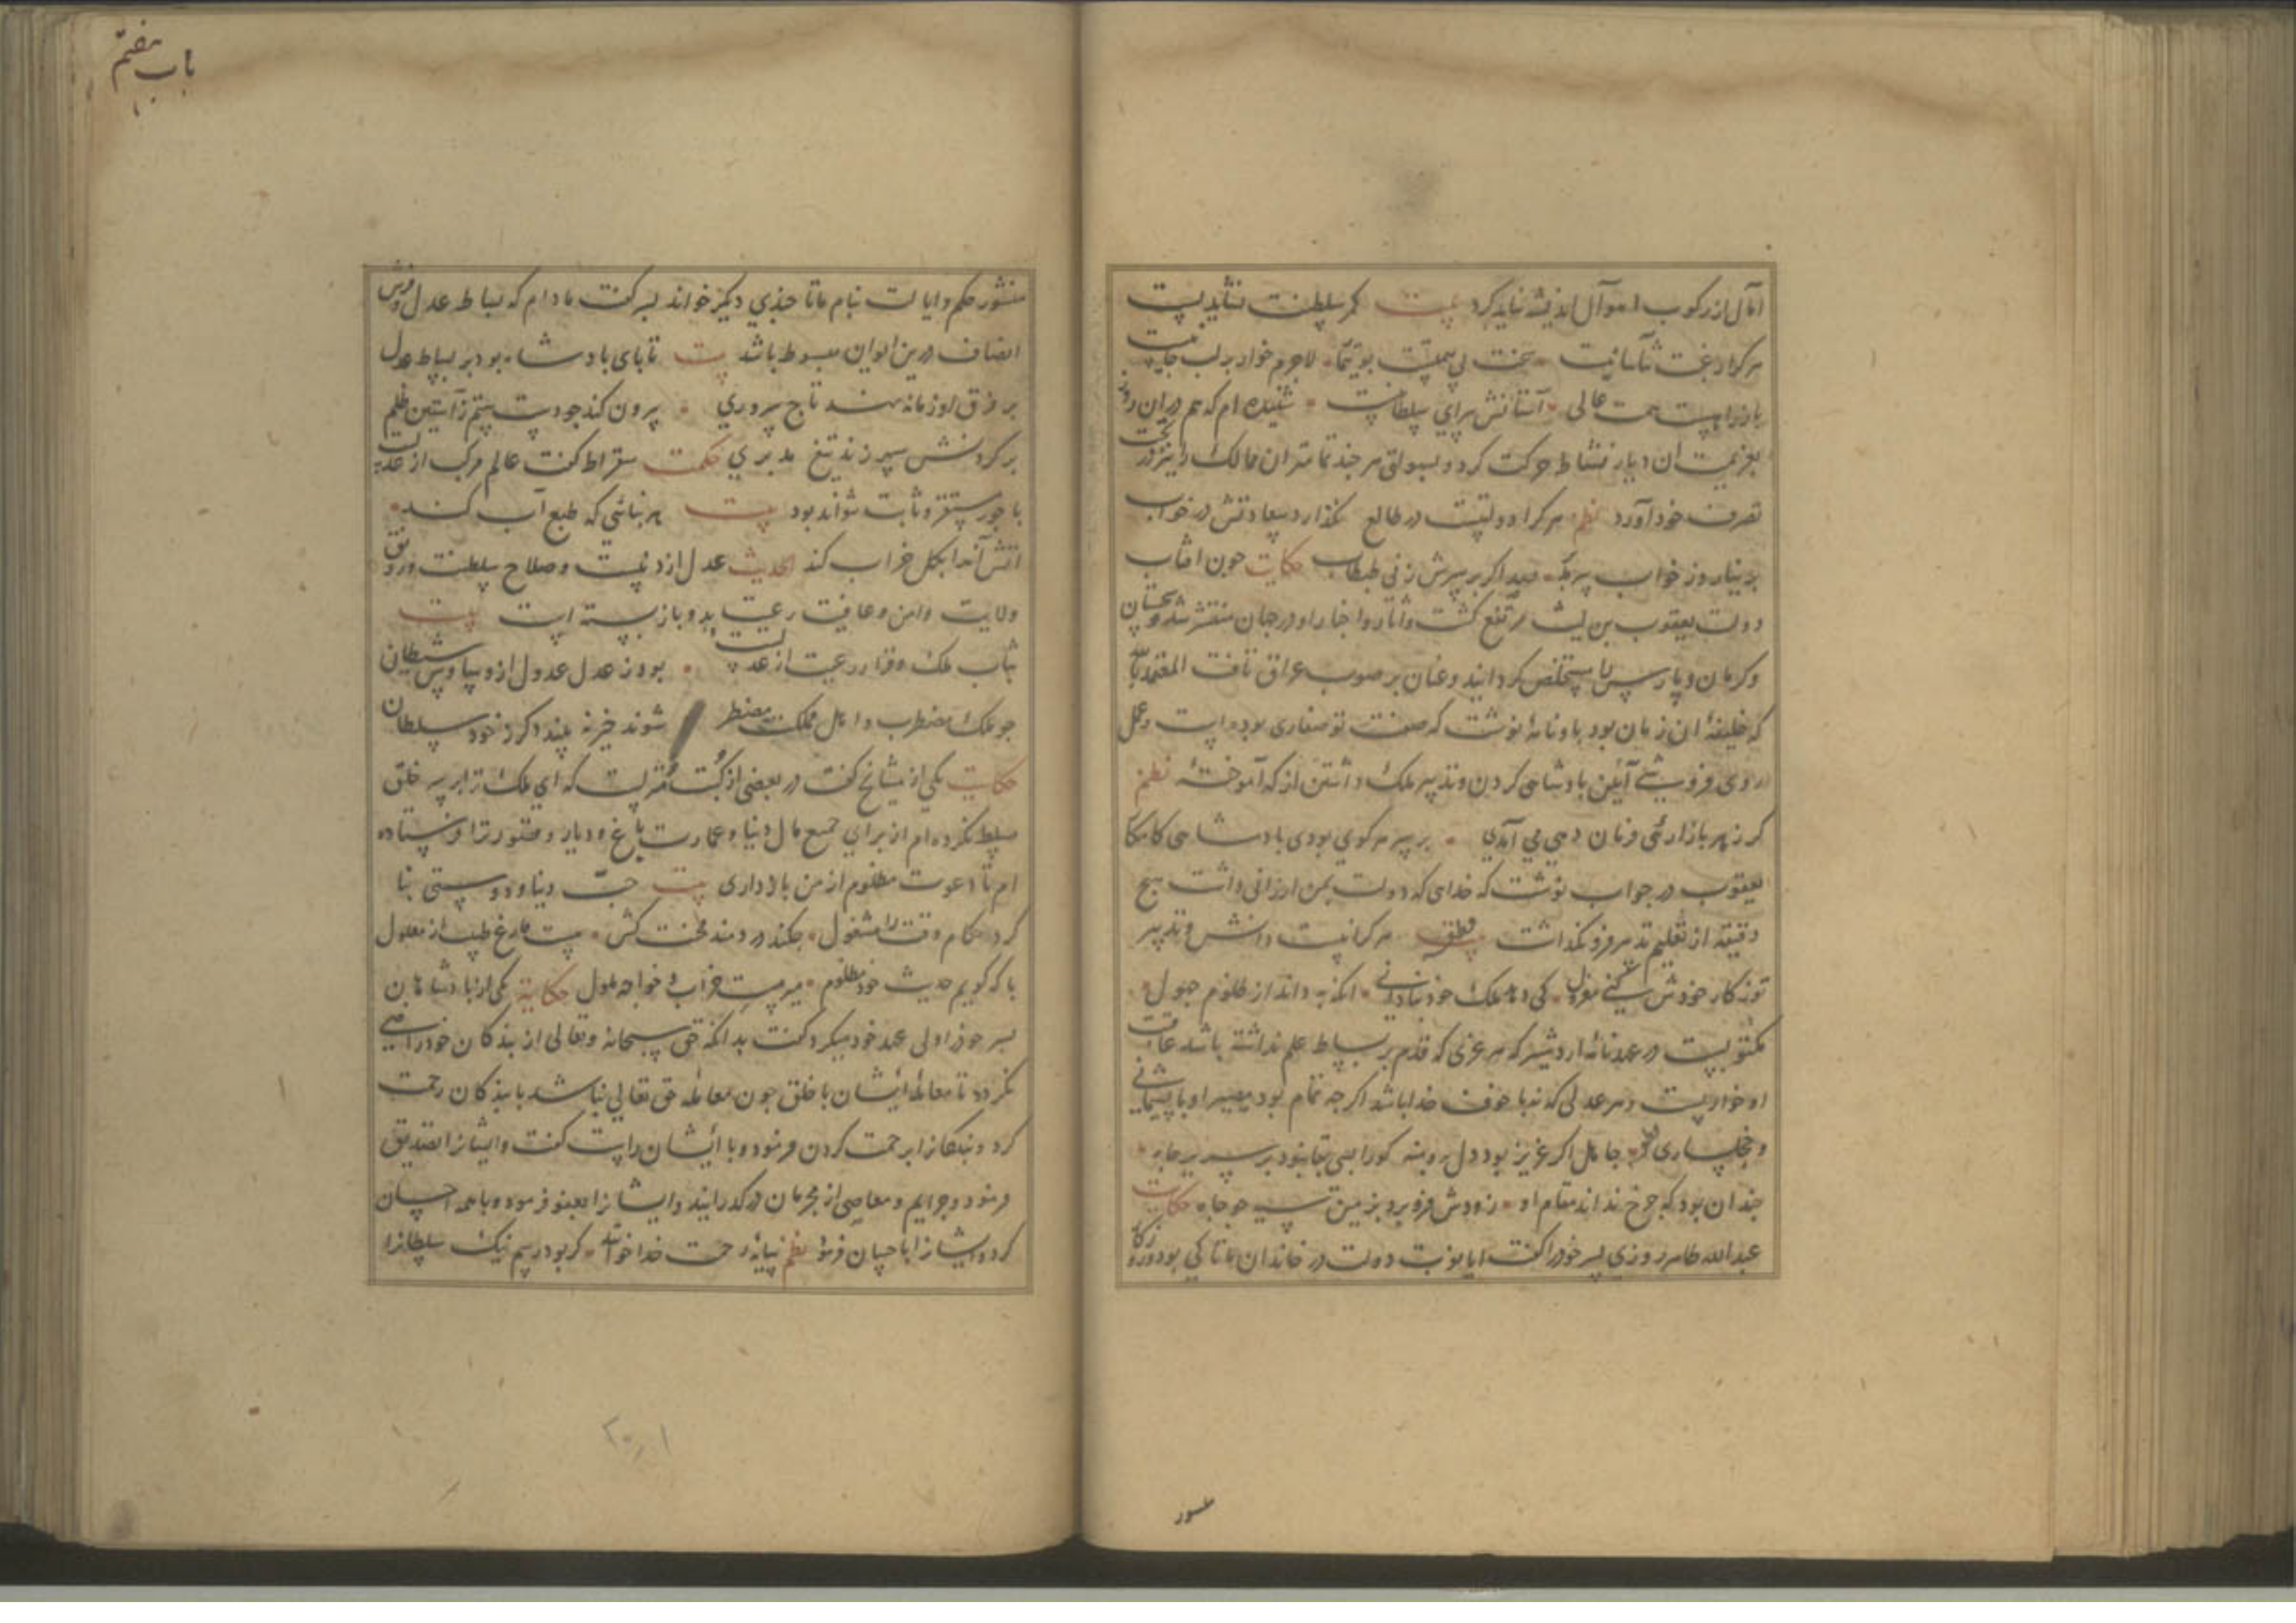 آمال از رکوب اموال اندیشه نباید کرد بیت کمر سلطنت نشاید بست
هر کرا رغبت تن آسانیست سخت بی همت لاجرم خوار بر لب
همت عالی آستانش سرای سلطانیست شنیده ام که هم در آن روز
بعزیمت آن دیار نشاط حرکت کرد و بسهولتی هر چند تمامتر آن ممالک را
تصرف خود آورد نظم هر کرا دولتیست در طالع نگذارد سعادتش در خواب
روز خواب حکایت چون آفتاب
دولت یعقوب بن لیث مرتفع گشت و آثار و اخبار او در جهان منتشر شد و سجستان
و کرمان و پارس را مستخلص گردانید و عنان بر صوب عراق تافت المعتمد بالله
که خلیفهٔ آن زمان بود باو نامهٔ نوشت که صنعت تو صفاری بوده است و عمل
روی فروشی آیین پادشاهی کردن و تدبیر ملک داشتن از که آموختهٔ نظم
گر ز هر بازارئی فرمان دهی می آمدی بر سر هر کوی بودی پادشاهی کامکار
یعقوب در جواب نوشت که خدای که دولت بمن ارزانی داشت هیچ
دقیقه از تعلیم تدبیر فرو نگذاشت قطعه هر کرا نیست دانش و تدبیر
تو ز کار خودش کنی معزول کی دهد ملک خود بنادانی آنکه به داند از ظلوم جهول
مکتوبیست در عهدنامهٔ اردشیر که هر عزی که قدم بر بساط علم نداشته باشد عاقبت
او خواریست و هر عدلی که نه با خوف خدا باشد اگر چه تمام بود مصیر او با پشیمانی
و خجلساری جاهل اگر عزیز بود دل برو منه کورا بسی بقا نبود بر سریر جاه
چندان بود که چرخ نداند مقام او زودش فرو برد بزمین سیه چو چاه حکایت
عبدالله طاهر روزی پسر خود را گفت آیا نوبت دولت در خاندان ما تا کی بود و روزگار
منشور
باب هفتم
منشور حکم و ایالت بنام ما تا چندی دیگر خواند پسر گفت مادام که بساط عدل و فرش
انصاف درین ایوان مبسوط باشد بیت تا پای پادشاه بود بر بساط عدل
بر فرق او زمانه نهد تاج سروری بیرون کند چو دست ستم ز آستین ظلم
بر گردنش سپهر زند تیغ مدبری حکمت سقراط گفت عالم مرکب از عدلست
با جور مستقر و ثابت نتواند بود بیت هر بنائی که طبع آب کند
آتش آنرا بکل خراب کند الحدیث عدل ازد نیست و صلاح سلطنت و رونق
ولایت و امن و عافیت رعیت بدو باز بسته است بیت
ثبات ملک و قرار رعیت از عدلست بود ز عدل عدول از وساوس شیطان
چو ملک مضطرب و اهل ملک مضطر شوند خیره نه بیند دگر ز خود سلطان
حکایت یکی از مشایخ گفت در بعضی از کتب منزلست که ای ملک ترا بر سر خلق
مسلط نکرده ام از برای جمع مال دنیا و عمارت باغ و دیار و قصور ترا فرستاده
ام تا دعوت مظلوم از من بازداری بیت حب دنیا و دوستی
کرد حکام وقت را مشغول چکند دردمند محنت کش هست فارغ طبیب از معلول
با که گویم حدیث خود مظلوم میر مست خراب و خواجه ملول حکایة یکی از پادشاهان
پسر خود را ولی عهد خود میکرد گفت بدانکه حق سبحانه و تعالی از بندکان خود راضی
نکردد تا معاملهٔ ایشان با خلق چون معاملهٔ حق تعالی نباشد با بندکان رحمت
کرد و بندکانرا برحمت کردن فرمود و با ایشان راست گفت و ایشانرا بصدیق
فرمود و جرایم و معاصی از مجرمان درکذرانید و ایشانرا بعفو فرمود و با همه احسان
کرد و ایشانرا باحسان فرمود نظم سایهٔ رحمت خدا خوانند گر بود رسم نیک سلطانرا